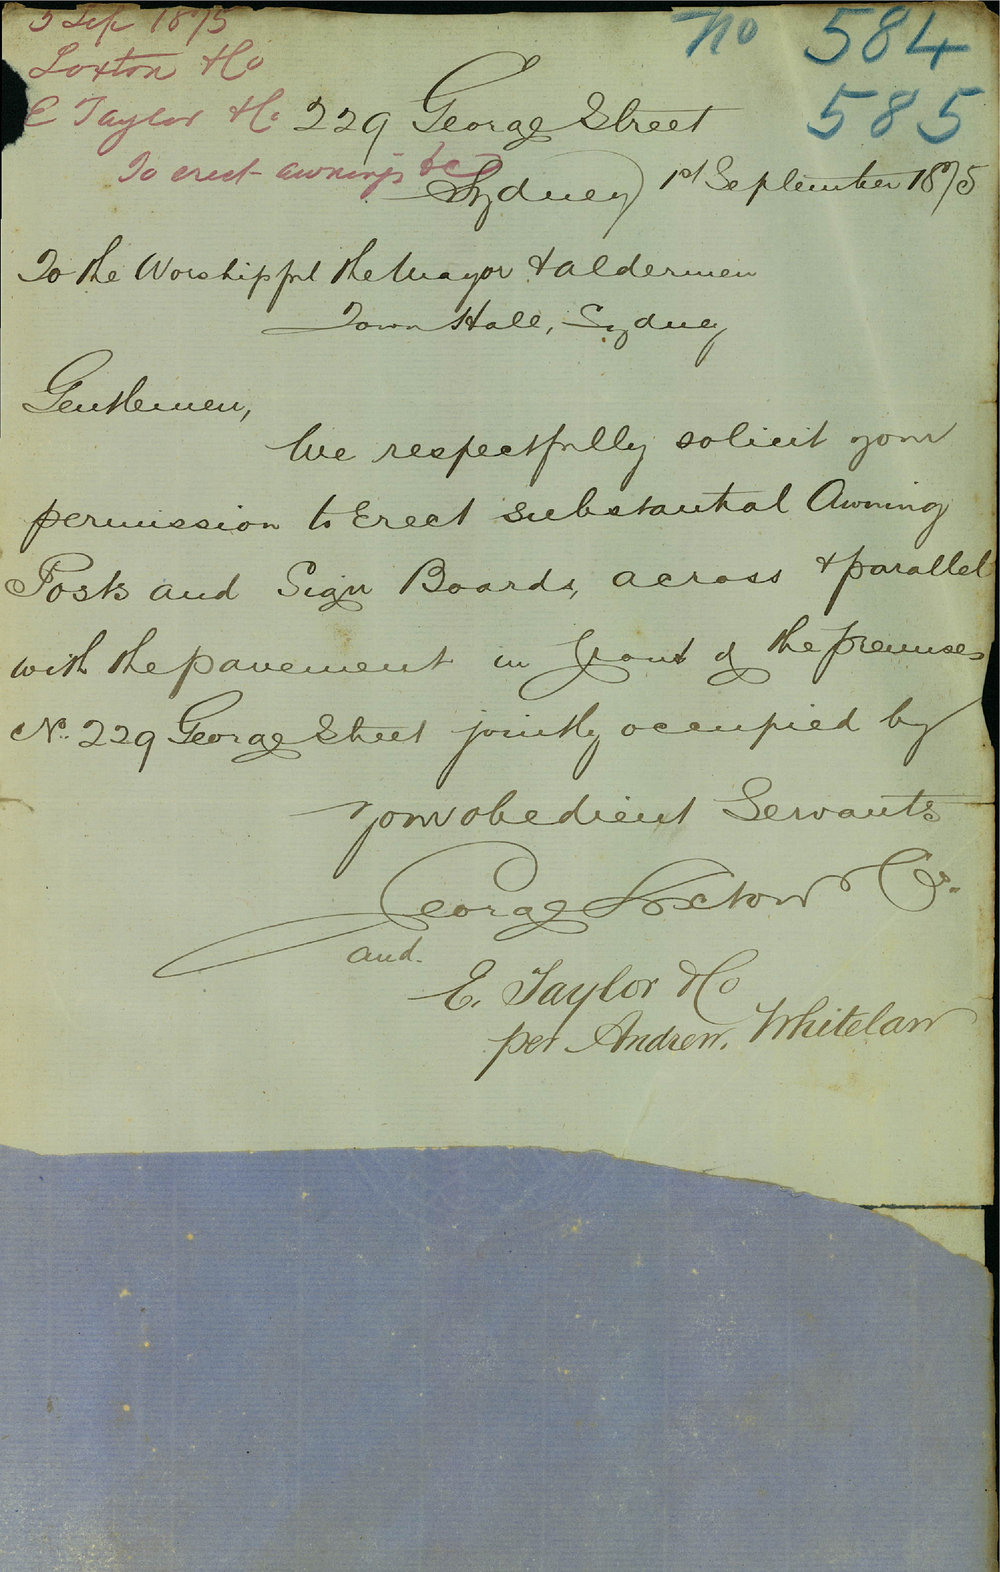 3 Sep 1875
Loxton & Co
E Taylor & Co
To erect awnings &c
No 584
585
229 George Street
Sydney 1st September 1875
To the Worshipful the Mayor & Aldermen
Town Hall, Sydney
Gentlemen,
We respectfully solicit your
permission to Erect substantial Awning
Posts and Sign Boards, across & parallel
with the pavement in front of the premises
No. 229 George Street jointly occupied by
your obedient Servants
George Loxton & Co.
and.
E. Taylor & Co
per Andrew. Whitelaw